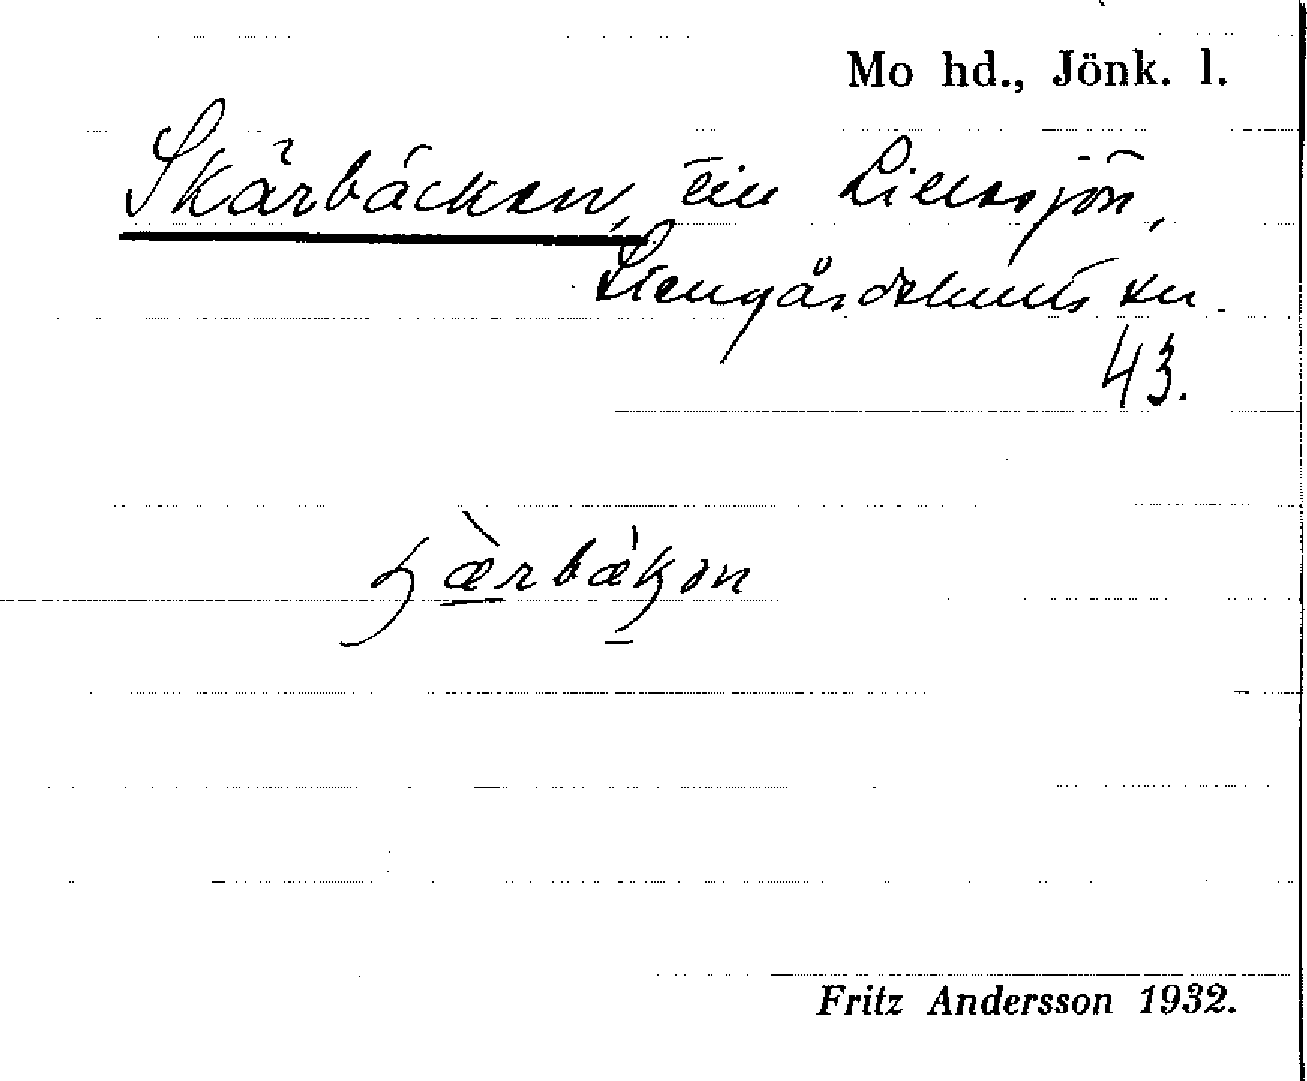 Mo hd., Jönk. l.
Skärbäcken, till Liensjön,
Stengårdshults sn.
43.
Fritz Andersson 1932.